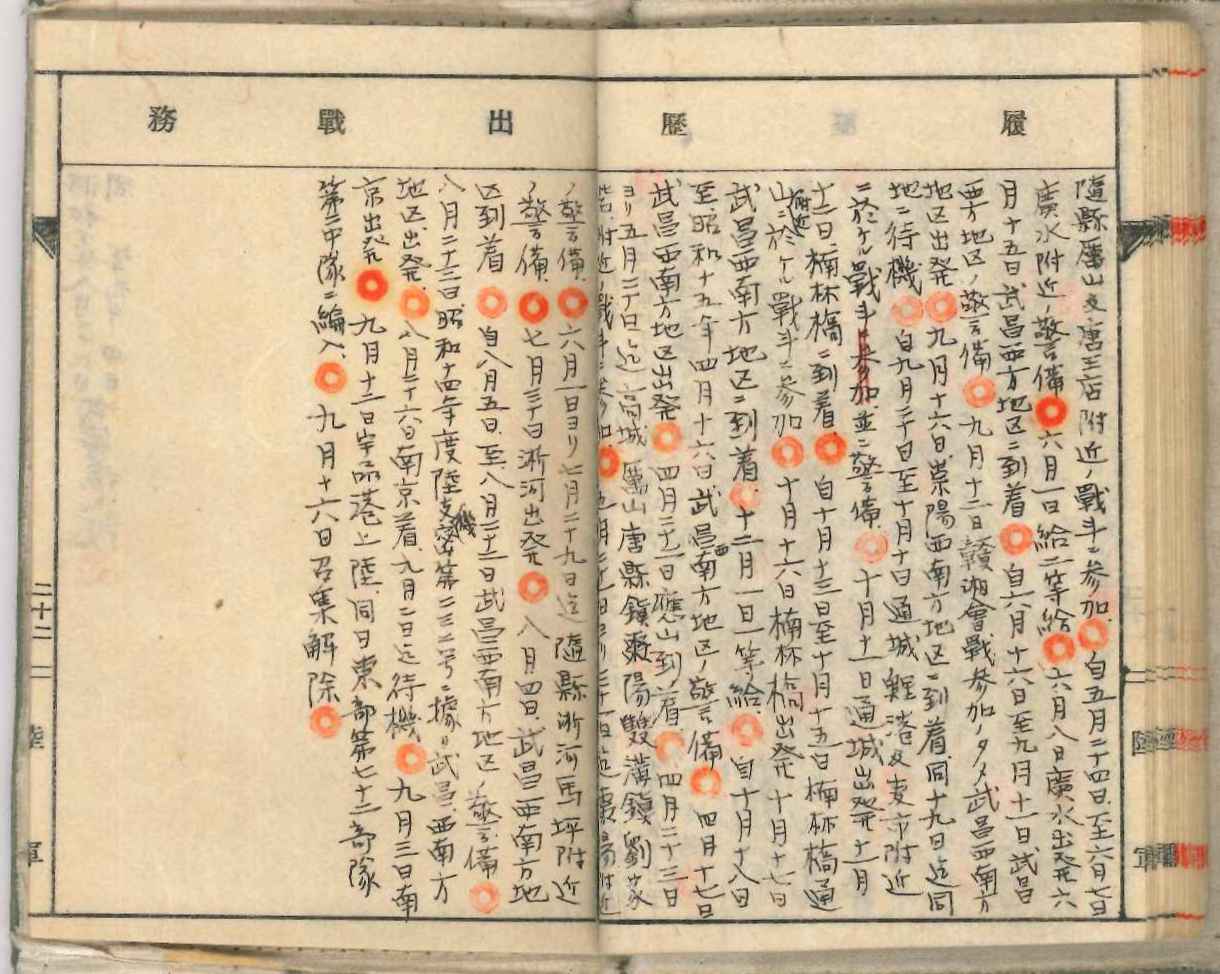 履歴
出戰務
隨縣厲山及唐王店附近ノ戰斗ニ参加 自五月二十四日至六月七日
廣水附近ノ警備 六月一日給二等給 六月八日廣水出発六
月十五日武昌西方地区ニ到着 自六月十六日至九月十一日武昌
西方地区ノ警備 九月十二日贛湘會戰参加ノタメ武昌西南方
地区出発 九月十六日崇陽西南方地区ニ到着同十九日迄同
地ニ待機 自九月二十日至十月十日通城鯉港及麦市附近
ニ於ケル戰斗ニ参加並ニ警備 十月十一日通城出発十一月
十二日楠林橋ニ到着 自十月十三日至十月十五日楠林橋通
山附近ニ於ケル戰斗ニ参加 十月十六日楠林橋出発十月十七日
武昌西南方地区ニ到着 十二月一日一等給 自十月十八日
至昭和十五年四月十六日武昌西南方地区ノ警備 四月十七日
武昌西南方地区出発 四月二十二日應山到着 四月二十三日
ヨリ五月二十日迄高城厲山唐縣鎮棗陽雙溝鎮劉家
附近ノ戰斗ニ参加
ノ警備 六月一日ヨリ七月二十九日迄隨縣淅河馬坪附近
ノ警備 七月三十日淅河出発 八月四日武昌西南方地
区到着 自八月五日至八月二十二日武昌西南方地区ノ警備
八月二十三日昭和十四年度陸支機密第二三二号ニ據リ武昌西南方
地区出発 八月二十六日南京着九月二日迄待機 九月三日南
京出発 九月十三日宇品港上陸同日東部第七十二部隊
第二中隊ニ編入 九月十六日召集解除
二十二
陸軍